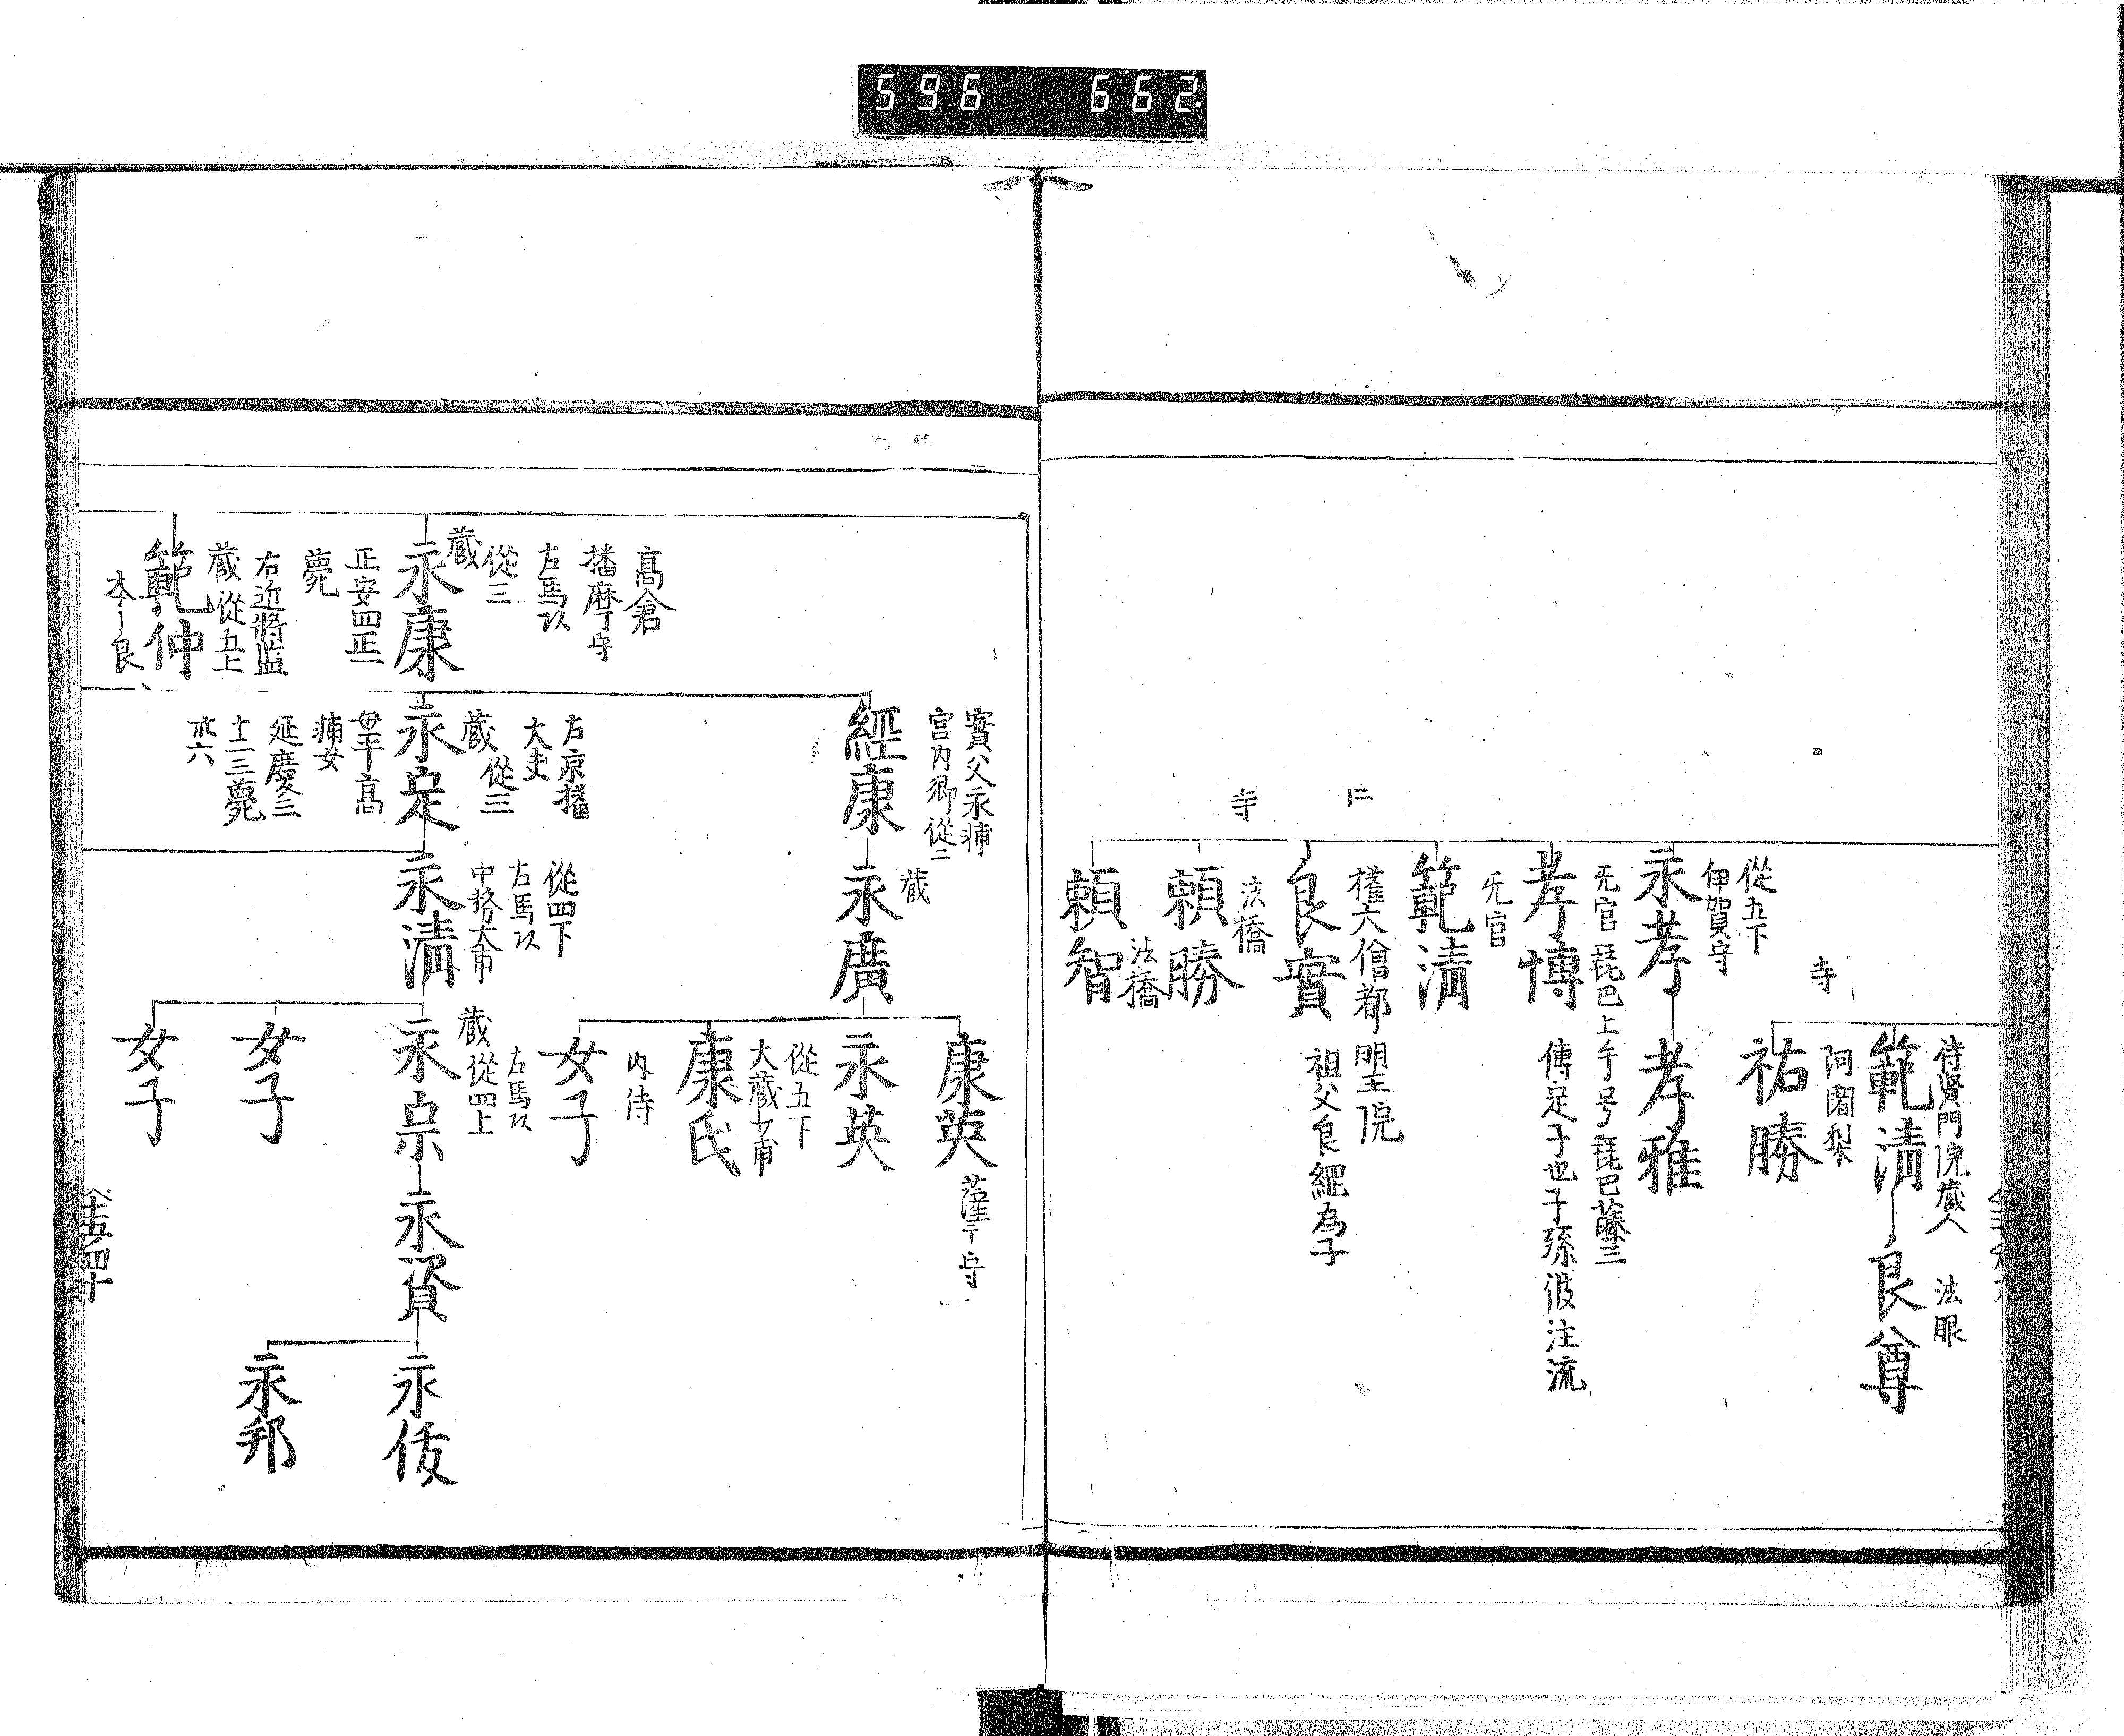 596 662
待賢門院蔵人
範清
法眼
良尊
寺
阿闍梨
祐勝
從五下
伊賀守
永孝
孝雅
无官 琵巴上手号琵巴藤三
孝博
傳定子也子孫彼注流
无官
範清
仁
權大僧都 明王院
良實
祖父良継為子
寺
法橋
頼勝
法橋
頼智
實父永痡
宮内卿從二
經康
蔵
永廣
康英
薩ー守
永英
從五下
大蔵少甫
康氏
内侍
女子
高倉
播麻丁守
右馬以
從三
蔵
永康
正安四正一
薨
右京播
大夫
從三
蔵
永定
母平高
痡女
延慶三
十二三薨
卅六
從四下
右馬以
中務大甫
永清
右馬以
蔵從四上
永宗
永資
永俊
永邦
女子
女子
右近將監
蔵從五上
範仲
本ー良
十五ノ四十